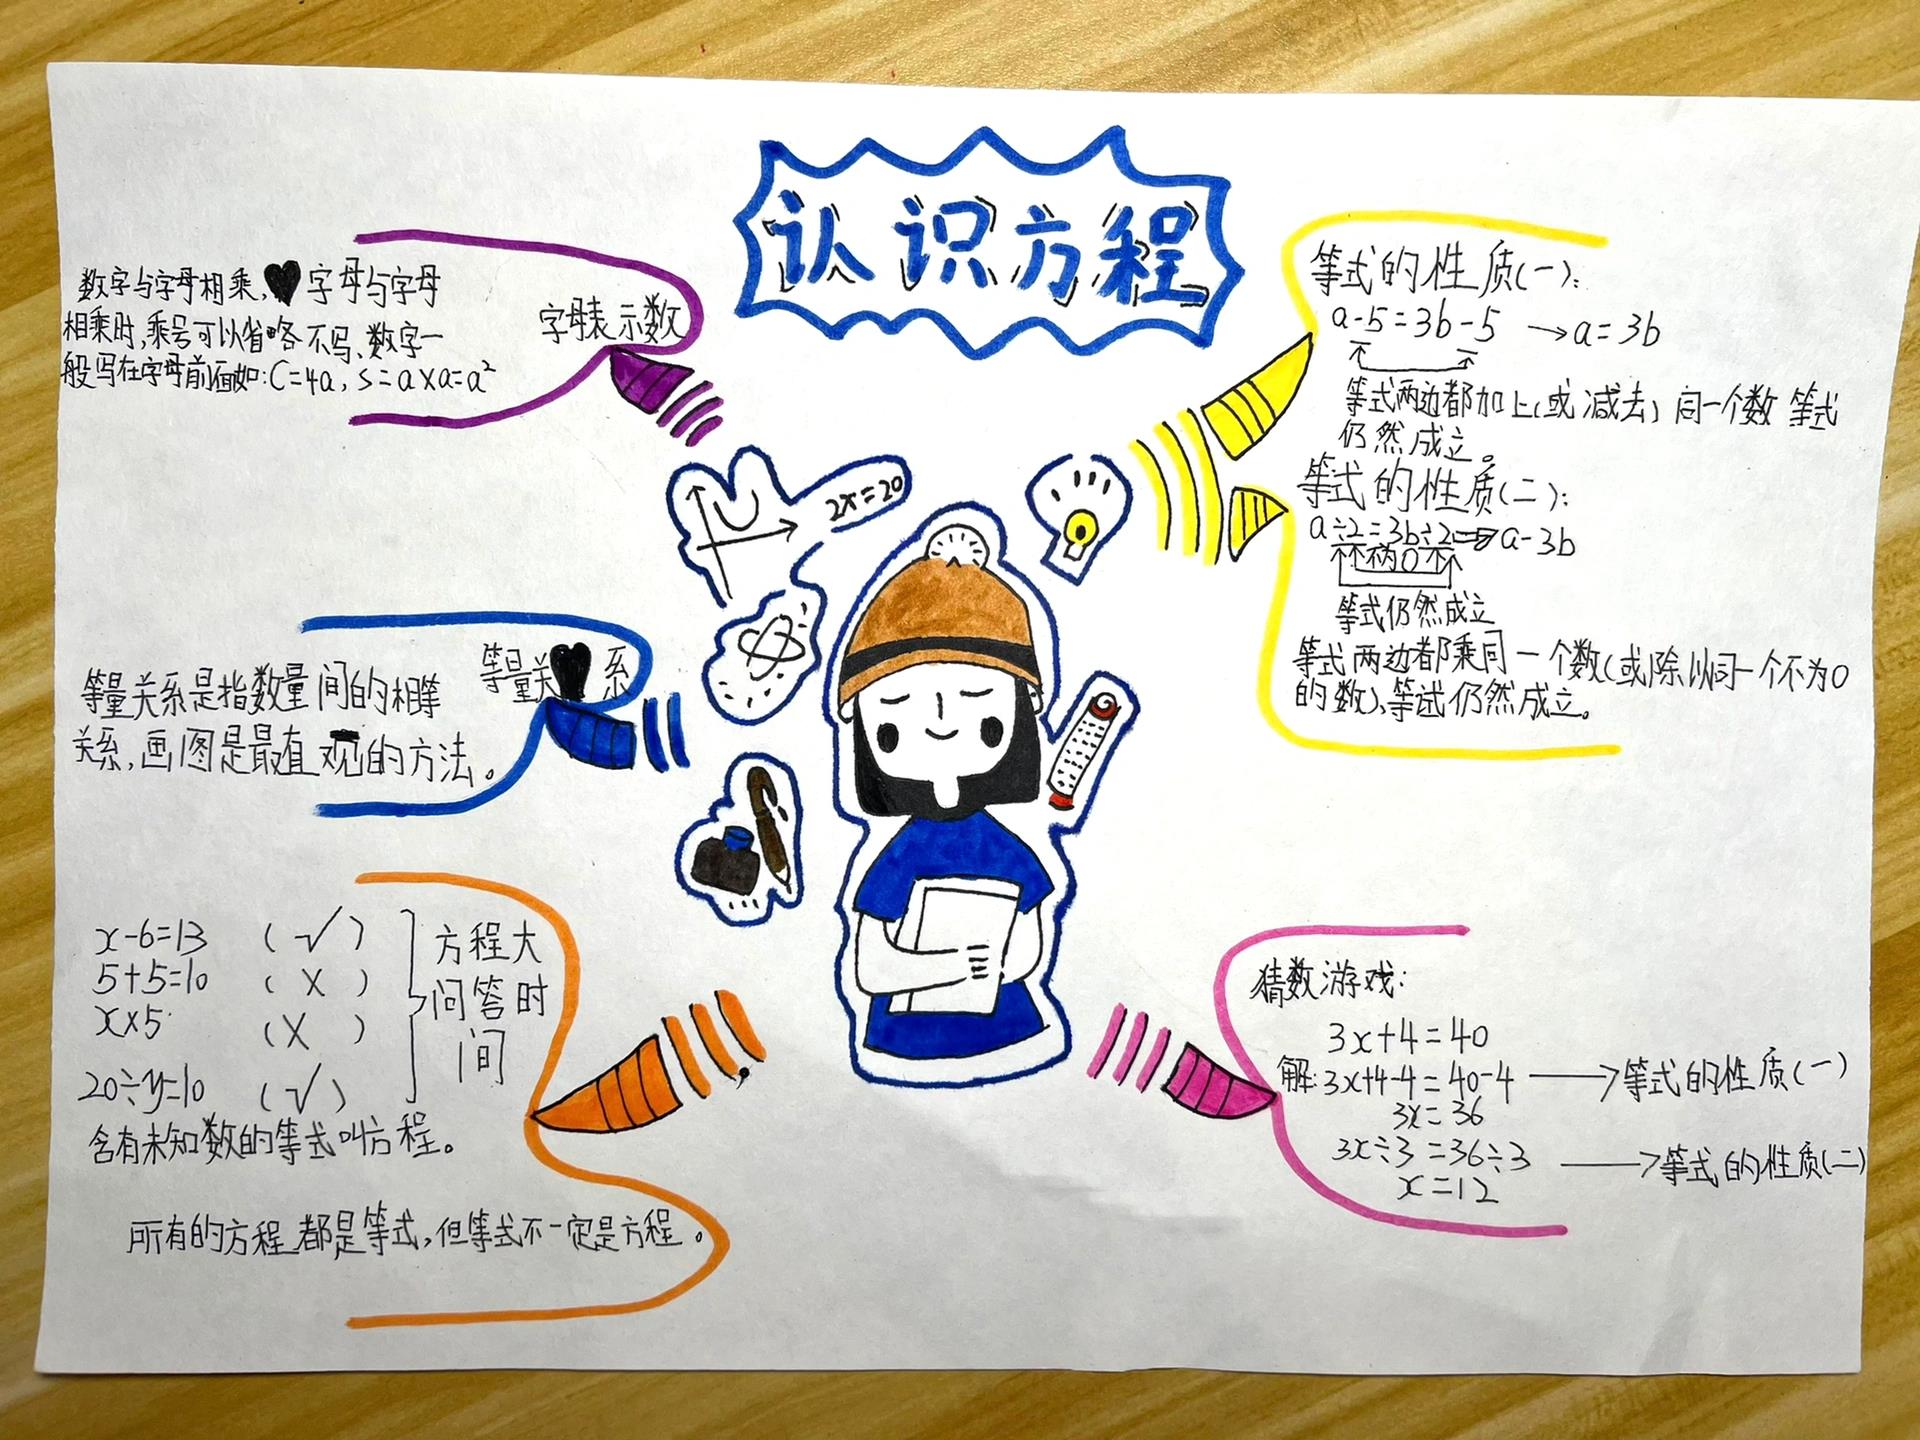 认识方程
数字与字母相乘,字母与字母
相乘时,乘号可以省略不写、数字一
般写在字母前面如:C=4a,S=a×a=a²
字母表示数
等量关系
等量关系是指数量间的相等
关系,画图是最直观的方法。
x-6=13 (√)
5+5=10 (×)
x×5 (×)
20÷y=10 (√)
方程大
问答时
间
含有未知数的等式叫方程。
所有的方程都是等式,但等式不一定是方程。
2x=20
等式的性质(一):
a-5=3b-5 →a=3b
等式两边都加上(或减去)同一个数 等式
仍然成立。
等式的性质(二):
a÷2=3b÷2⇒a-3b
不为0
等式仍然成立
等式两边都乘同一个数(或除以同一个不为0
的数),等试仍然成立。
猜数游戏:
3x+4=40
解:3x+4-4=40-4 →等式的性质(一)
3x=36
3x÷3=36÷3 →等式的性质(二)
x=12